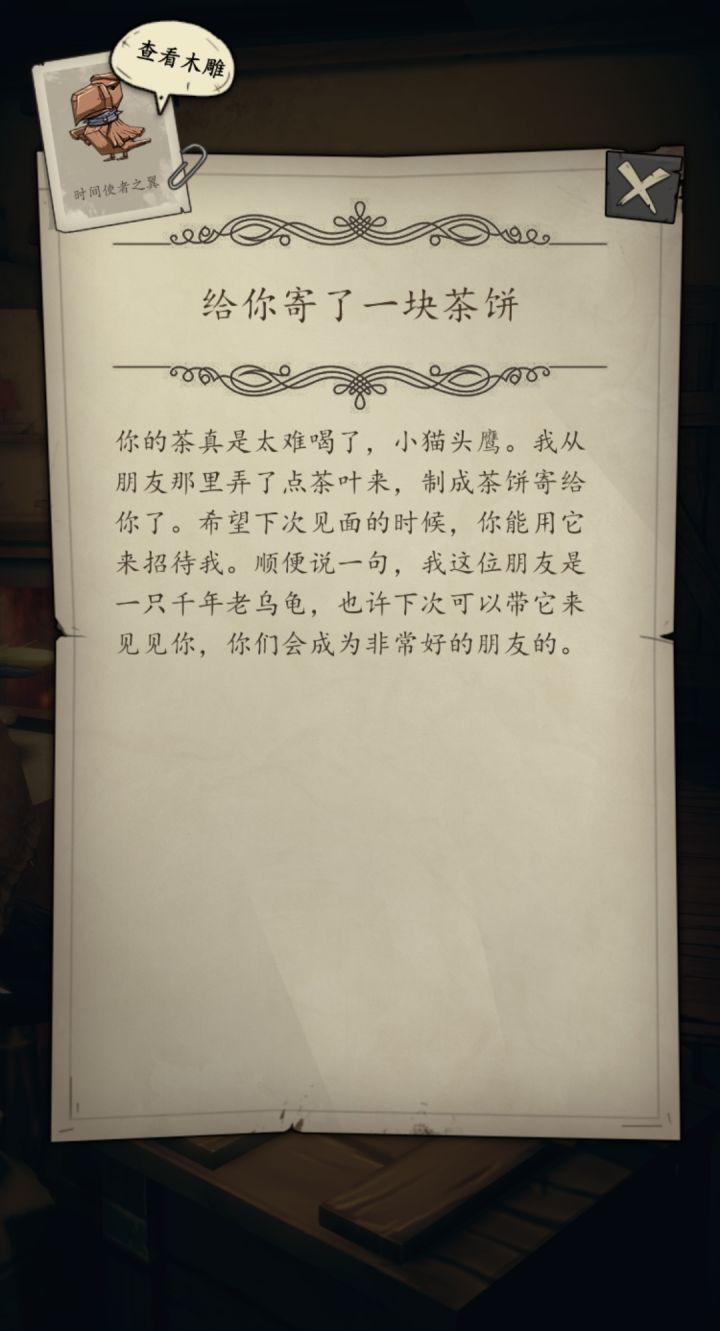 查看木雕
时间使者之翼
给你寄了一块茶饼
你的茶真是太难喝了，小猫头鹰。我从
朋友那里弄了点茶叶来，制成茶饼寄给
你了。希望下次见面的时候，你能用它
来招待我。顺便说一句，我这位朋友是
一只千年老乌龟，也许下次可以带它来
见见你，你们会成为非常好的朋友的。